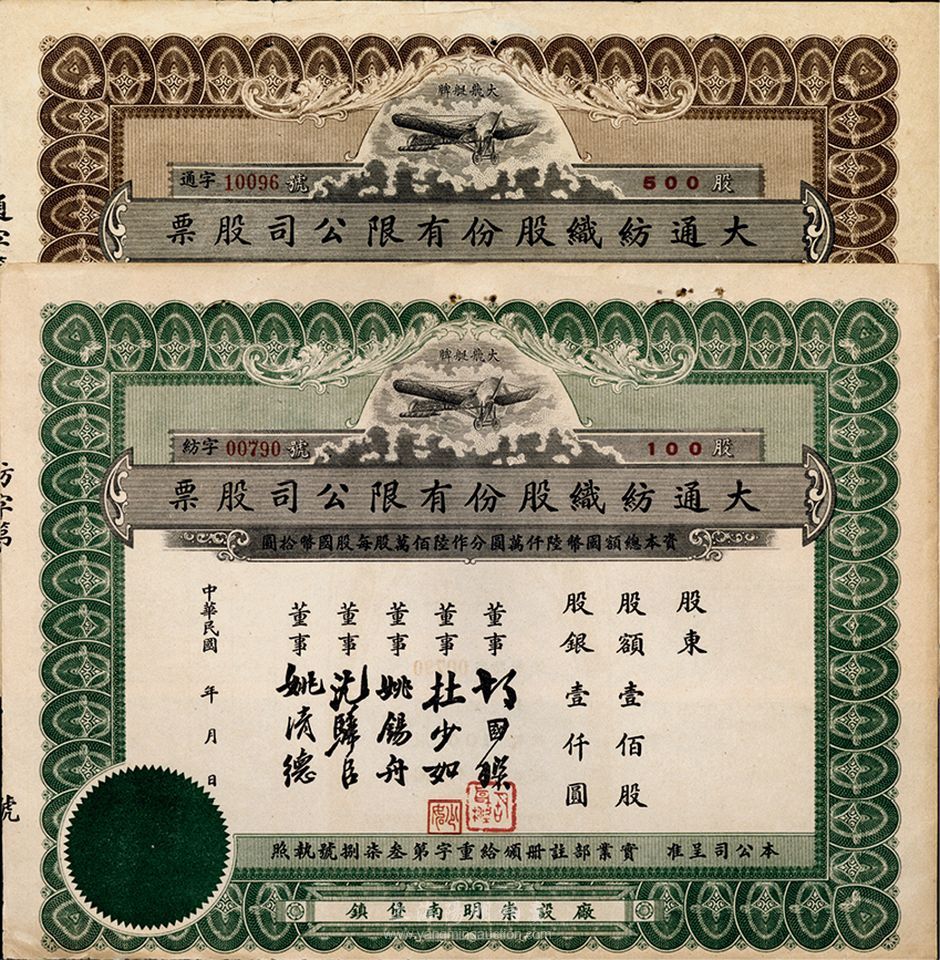 大飛艇牌
通字 10096 號
500 股
大通紡織股份有限公司股票
大飛艇牌
紡字 00790 號
100 股
大通紡織股份有限公司股票
資本總額國幣陸仟萬圓分作陸佰萬股每股國幣拾圓
股東
股額壹佰股
股銀壹仟圓
董事
董事 杜少如
董事 姚錫舟
董事 沈驊臣
董事 姚清德
中華民國 年 月 日
本公司呈准 實業部註冊頒給重字第叁柒捌號執照
廠設崇明南堡鎮
紡字第
號
www.yangmingauction.com